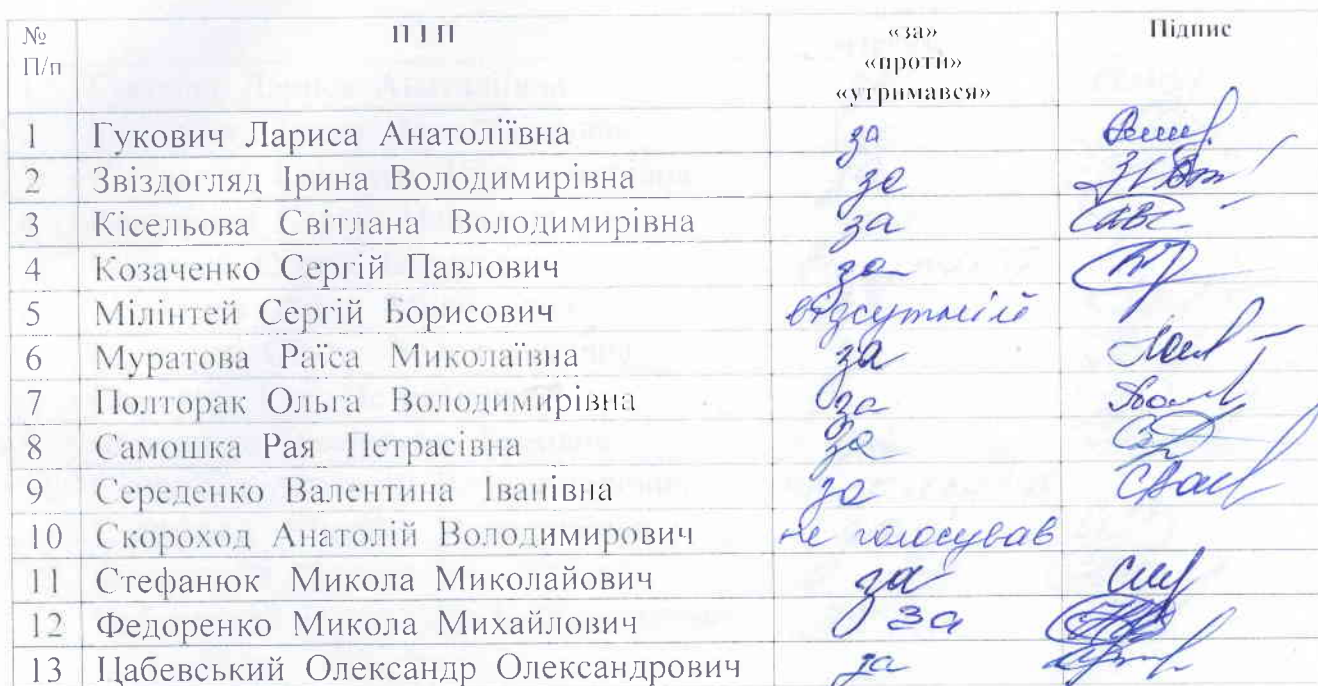 № П І П «за» Підпис
П/п «проти»
«утримався»
1 Гукович Лариса Анатоліївна за
2 Звіздогляд Ірина Володимирівна за
3 Кісельова Світлана Володимирівна за
4 Козаченко Сергій Павлович за
5 Мілінтей Сергій Борисович відсутній
6 Муратова Раїса Миколаївна за
7 Полторак Ольга Володимирівна за
8 Самошка Рая Петрасівна за
9 Середенко Валентина Іванівна за
10 Скороход Анатолій Володимирович не голосував
11 Стефанюк Микола Миколайович за
12 Федоренко Микола Михайлович за
13 Цабевський Олександр Олександрович за